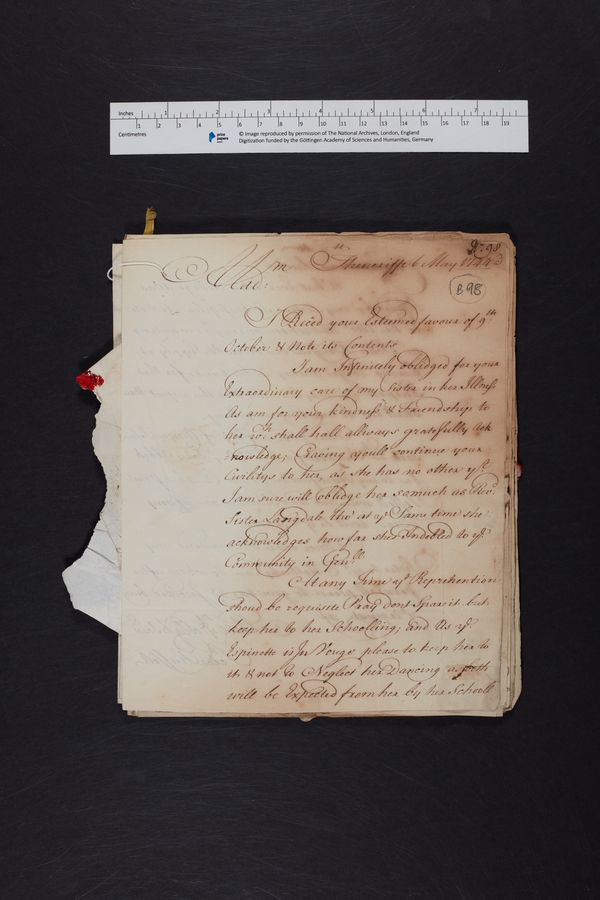 Inches 1 2 3 4 5 6 7
1 2 3 4 5 6 7 8 9 10 11 12 13 14 15 16 17 18 19
Centimetres
prize papers
© Image reproduced by permission of The National Archives, London, England
Digitization funded by the Göttingen Academy of Sciences and Humanities, Germany
B 98
Mad:m Theneriffe 6 May 1744
I Recd your Esteemed favour of 9th
October & Note its Contents
I am Infinitely oblidged for your
Extraordinary care of my Sister in her Illness
As am for your kindness & Friendship to
her wch shall hall allways gratefully Ack
=nowledge; Craving youll continue your
Civilitys to her, as she has no other yt
I am sure will Oblidge her so much as Revd
Sister Langdale tho' at ye Same time she
acknowledges how far shes Indebted to ye
Community in Genll
At any time yt Reprehention
shoud be requisete Pray dont Spare it but
keep her to her Schoolling; and As ye
Espinette is In Vouge please to keep her to
it & not to Neglect her Dancing as both
will be Expected from her by her Schooll